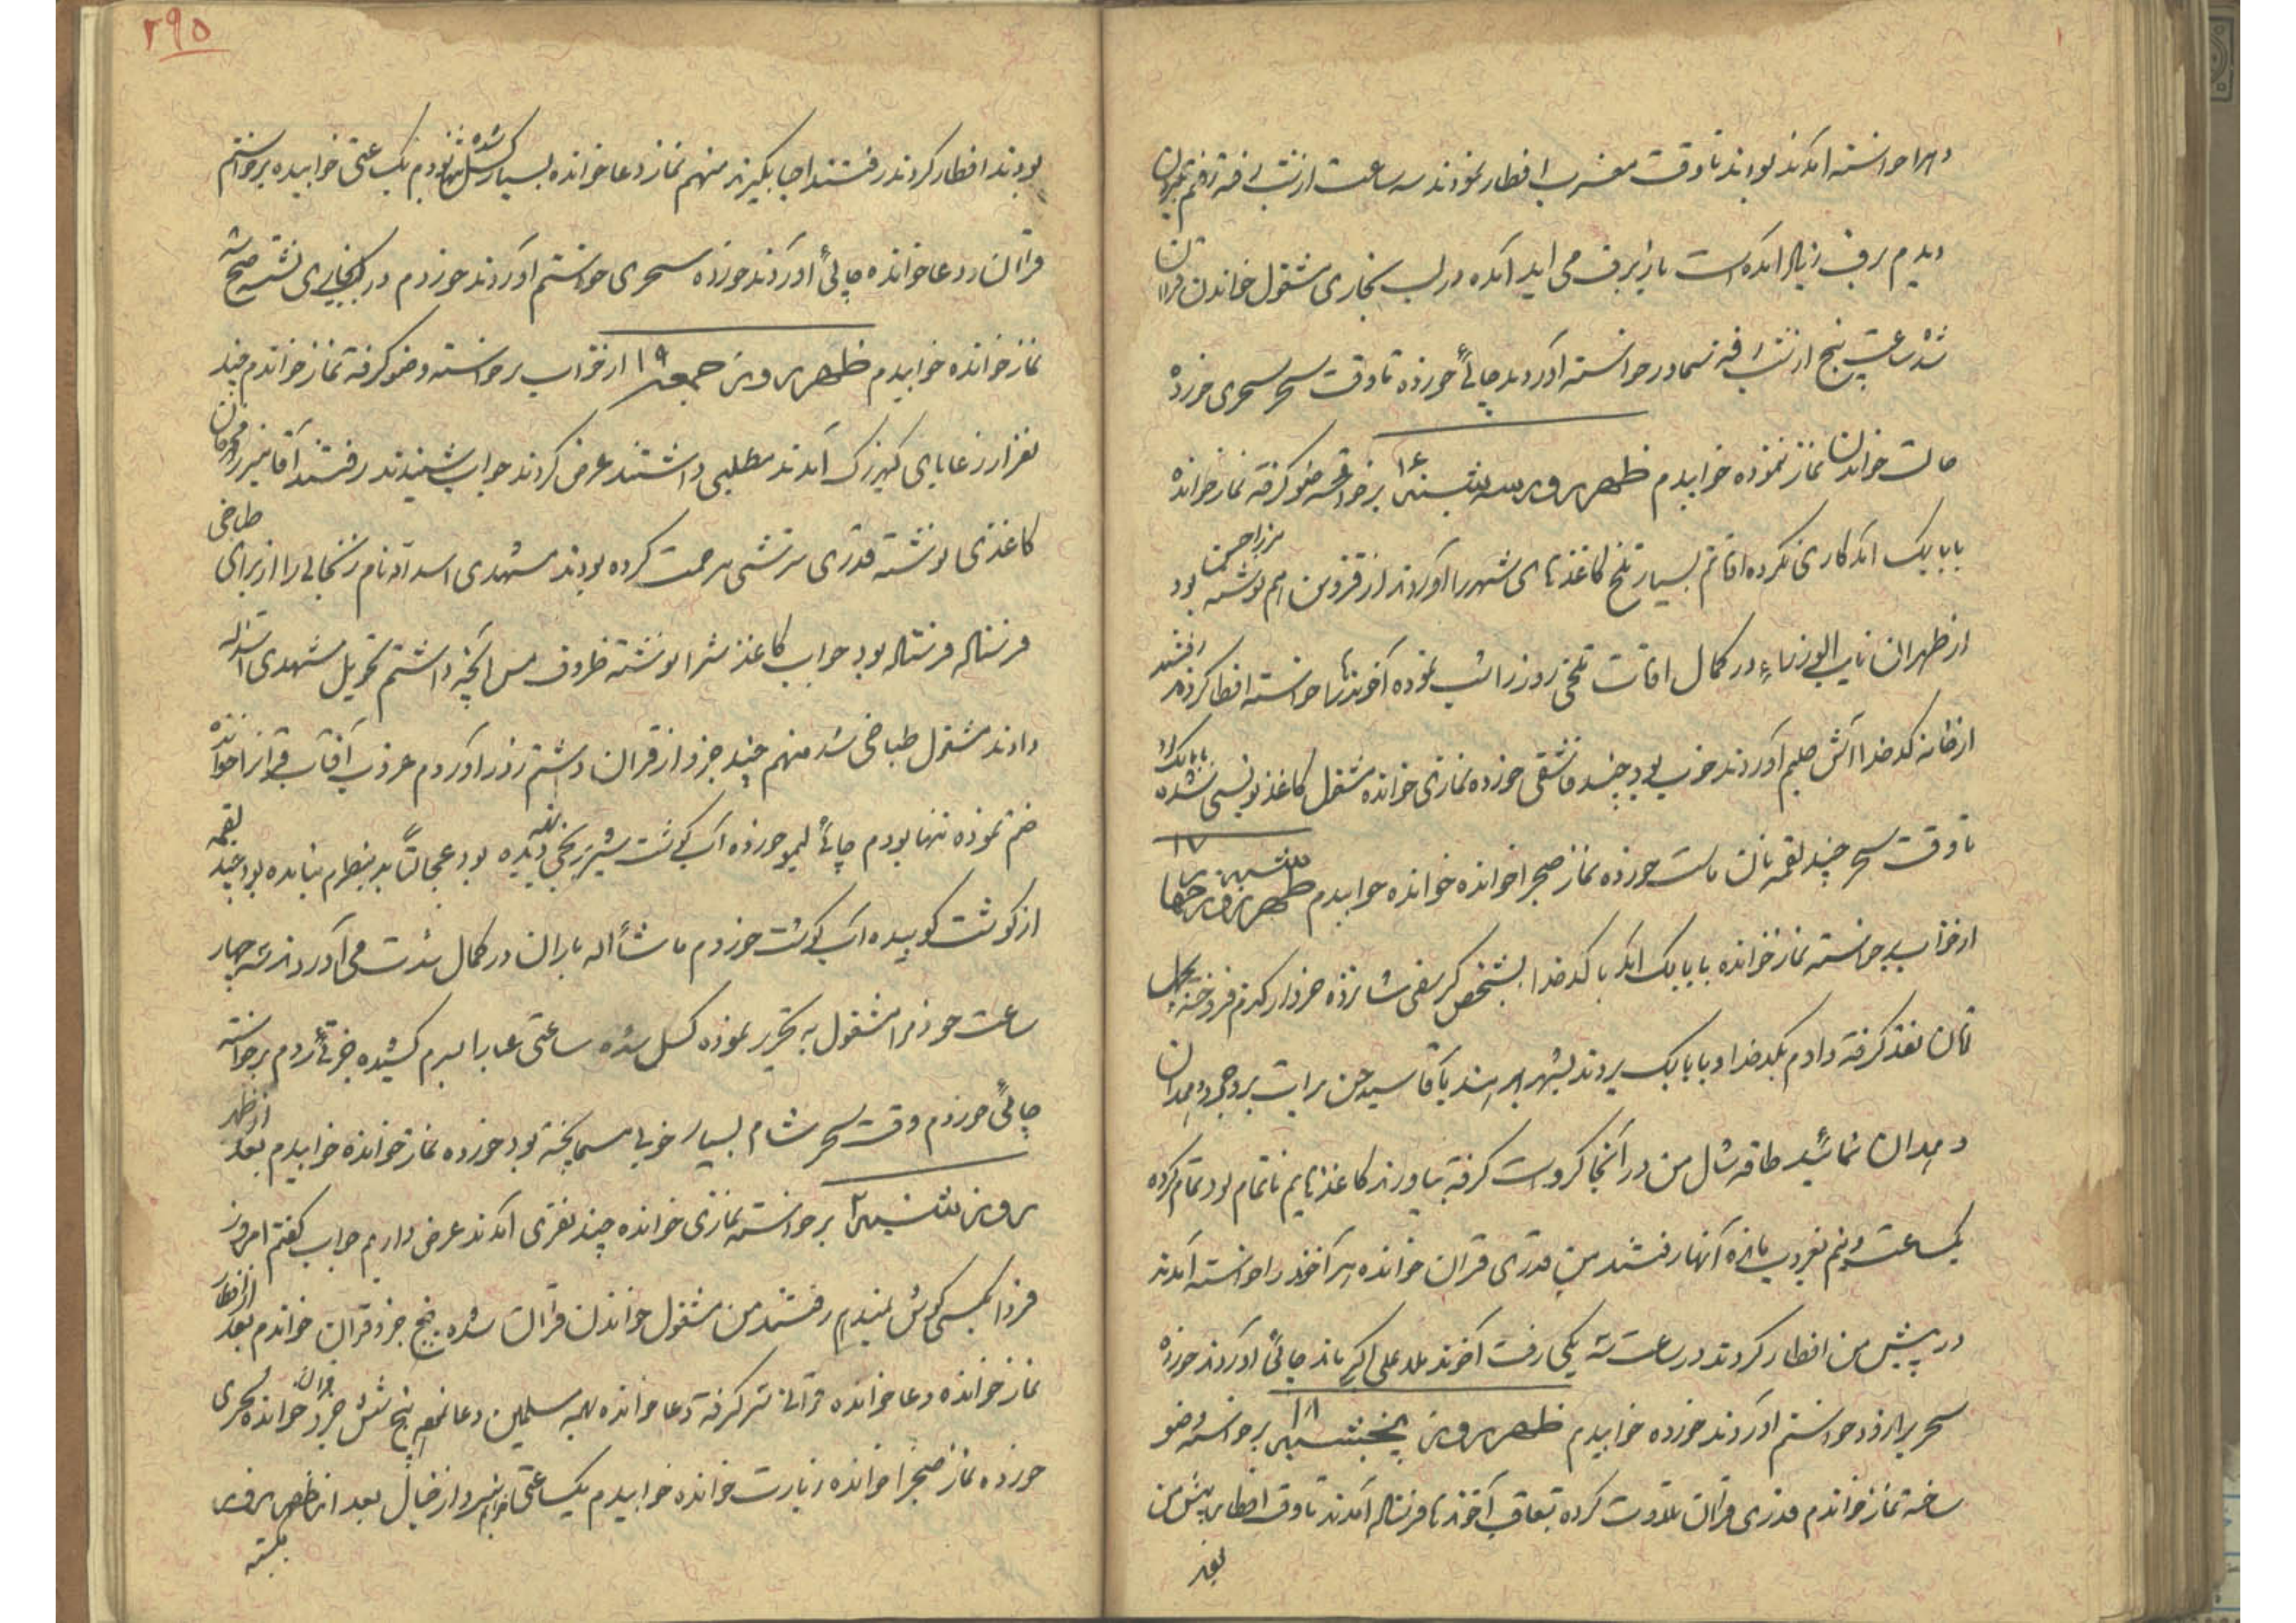 خواسته آمدند بودند تا وقت مغرب افطار نمودند سه ساعت از شب رفته رفتم بیرون
دیدم برف زیاد آمده است باز برف می اید آمده در لب بخاری مشغول خواندن قران
شده ساعت پنج از شب رفته سماور خواسته آوردند چائی خورده تا وقت سحر سحری خورده
حالت خواندن نماز نموده خوابیدم ظهر روز سه شنبه ۱۶ برخواسته وضو گرفته نماز خوانده
بابا بیک آمد کاری نکرده اوقاتم بسیار تلخ کاغذهای شهر را آوردند از قزوین هم میرزا حسن نوشته بود
از طهران نایب الوزراء در کمال اوقات تلخی روز را شب نموده آخوندها خواسته افطار کردند رفتند
از خانه کدخدا آش حلیم آوردند خوب بود چند قاشقی خورده نمازی خوانده مشغول کاغذ نویسی شده
تا وقت سحر چند لقمه نان ماست خورده نماز صبح را خوانده خوابیدم ظهر روز چهارشنبه ۱۷
از خواب برخواسته نماز خوانده بابا بیک آمد با کدخدا بشخص کرسفی شانزده خروار گندم فروخته
تومان نقد گرفته دادم بکدخدا و بابا بیک بردند بشهر بدهند باقا سید حسن برات بروجرد و همدان
و همدان نمائید طاقه شال من در آنجا گرو است گرفته بیاورند کاغذهایم ناتمام بود تمام کرده
یکساعت و نیم بغروب مانده آنها رفتند من قدری قران خوانده آخوند را خواسته آمدند
در پیش من افطار کردند در ساعت سه یکی رفت آخوند ملا علی اکبر ماند چائی آوردند خورده
سحر خواستم آوردند خورده خوابیدم ظهر روز پنجشنبه ۱۸ برخواسته وضو
ساخته نماز خواندم قدری قران تلاوت کرده تعاقب آخوندها فرستاده آمدند تا وقت افطار پیش من
بودند
بودند افطار کردند رفتند احیا بگیرند منهم نماز دعا خوانده بسیار کسل شده تنها بودم یک ساعتی خوابیده برخواستم
قران و دعا خوانده چائی آوردند خورده سحری خواستم آوردند خوردم در لب بخاری نشسته صبح شد
نماز خوانده خوابیدم ظهر روز جمعه ۱۹ از خواب برخواسته وضو گرفته نماز خواندم چند
نفر از رعایای کهرزک آمدند مطلبی داشتند عرض کردند جواب شنیدند رفتند آقا میرزا
کاغذی نوشته قدری ترشی مرحمت کرده بودند مشهدی اسداله نام زنجانی را از برای طباخی
فرستاده فرستاده بود جواب کاغذش را نوشته ظروف مس آنچه داشتم تحویل مشهدی اسداله
دادند مشغول طباخی شد منهم چند جزو از قران داشتم زور آوردم غروب آفتاب قران را خوانده
ختم نموده تنها بودم چائی لیمو خورده آب گوشت شیر برنجی بود عجالتاً بد بنظرم نیامده بود چند لقمه
از گوشت کوبیده آب گوشت خوردم ماشأاله باران در کمال شدت می آمد سه چهار
ساعت خودم را مشغول به تحریر نموده کسل شده ساعتی عبا را بسرم کشیده چرتی زدم برخواسته
چائی خوردم وقت سحر شام بسیار خوبی پخته بود خورده نماز خوانده خوابیدم بعد از ظهر
روز شنبه ۲۰ برخواسته نمازی خوانده چند نفری آمدند عرض داریم جواب گفتم امروز
فردا بکسی گوش نمیدهم رفتند من مشغول خواندن قران شده پنج جزو قران خواندم بعد از افطار
نماز خوانده و دعا خوانده قران بسر گرفته دعا خوانده بهمه مسلمین دعا نمودم پنج شش جزو قران خوانده سحری
خورده نماز صبح را خوانده زیارت خوانده خوابیدم یکساعتی خیال بعد از ظهر روز
یکشنبه
۲۹۵